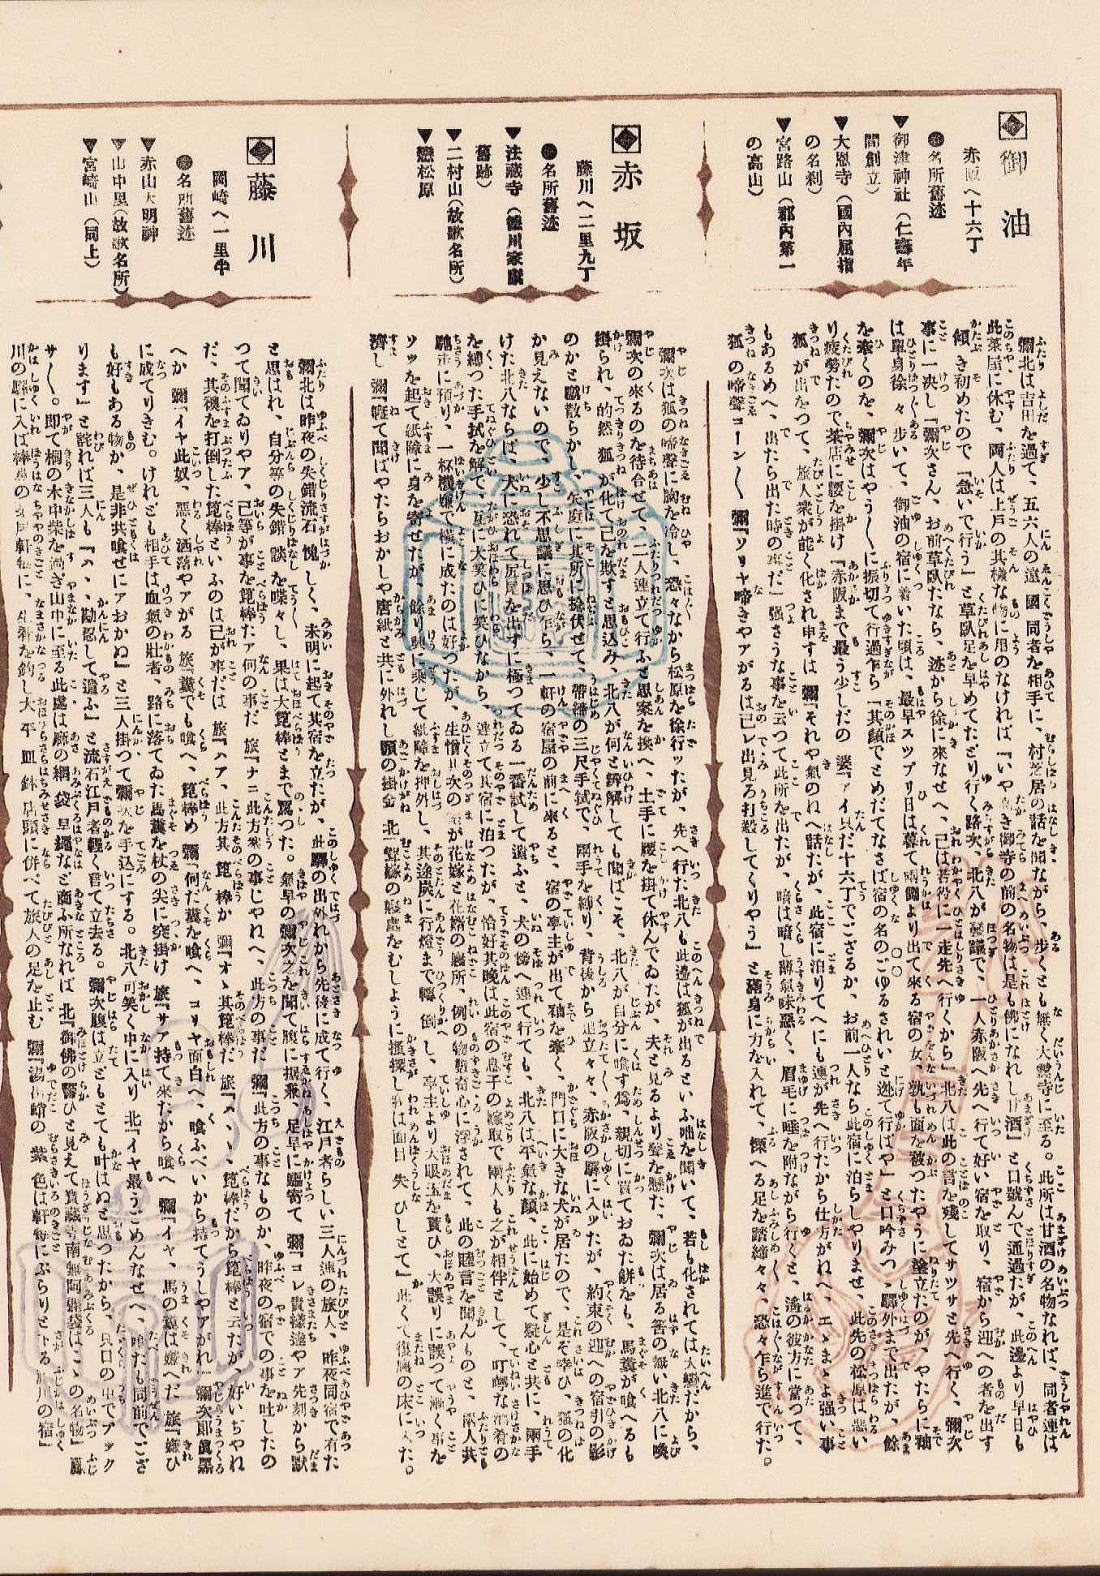 御油
赤阪へ十六丁
●名所舊迹
▼御津神社（仁壽年
間創立）
▼大恩寺（國內屈指
の名刹）
▼宮路山（郡內第一
の高山）
彌北は吉田を過て、五六人の遠國同者を相手に、村芝居の話を聞ながら、歩くとも無く大雲寺に至る。此所は甘酒の名物なれば、同者連は
此茶屋に休む、兩人は上戸の其樣な物に用のなければ、『いや高き御寺の前の名物は是も佛になれし甘酒』と口號んで通過たが、此邊より早日も
傾き初めたので『急いで行う』と草臥足を早めてたどり行く路次、北八が發議で、一人赤阪へ先へ行て好い宿を取り、宿から迎への者を出す
事に一决し『彌次さん、お前草臥たなら、迹から徐に來なせへ、己は若役に一走先へ行くから』北八は此の言を殘してサツサと先へ行く、彌次
は單身徐々歩いて、御油の宿に着いた頃は、最早スツプリ日は暮て兩側より出て來る宿の女、孰も面を被つたやうに塗立たのが、やたらに袖
を牽くのを、彌次はやう〳〵に振切て行過乍ら『其顏でとめだてなさば宿の名の御油るされいと逃て行ばや』と口吟みつゝ驛外まで出たが、餘
り疲勞たので茶店に腰を掛け『赤阪まで最う少しだの　婆『アイ只だ十六丁でござるが、お前一人なら此宿に泊らしやりませ、此先の松原は惡い
狐が出をつて、旅人衆が能く化され申すは　彌『それや氣のねへ話だが、此宿に泊りてへにも連が先へ行たから仕方がねへ、エヽまゝよ强い事
もあるめへ、出たら出た時の事だ』强さうな事を云つて此所を出たが、暗は暗し薄氣味惡く、眉毛に唾を附ながら行くと、遙の彼方に當つて、
狐の啼聲コーン〳〵　彌『ソリヤ啼きやアがるは己レ出見ろ打殺してくりやう』と滿身に力を入れて、慄へる足を踏締々々、恐々乍ら進で行た。
赤坂
藤川へ二里九丁
●名所舊迹
▼法藏寺（德川家康
舊跡）
▼二村山（故歌名所）
▼戀松原
彌次は狐の啼聲に胸を冷し、恐々ながら松原を徐行ッたが、先へ行た北八も此邊は狐が出るといふ咄を聞いて、若も化されては大變だから、
彌次の來るのを待合せて、二人連立て行ふと思案を換へ、土手に腰を掛て休んでゐたが、夫と見るより聲を懸た、彌次は居る筈の無い北八に喚
掛られ、的然狐が化て己を欺すと思込み、北八が何と辨解しても聞ばこそ、北八が自分に喰す爲、親切に買ておゐた餅をも、馬糞が喰へるも
のかと蹴散らかし、矢庭に其所に捻伏せて、帶締の三尺手拭で、兩手を縛り、背後から追立々々、赤阪の驛に入ッたが、約束の迎への宿引の影
か見えないので、少し不思議に思ひ乍ら、一軒の宿屋の前に來ると、宿の亭主が出て袖を牽く、門口に大きな犬が居たので、是ぞ幸ひ、狐の化
けた北八ならば、犬に恐れて尻尾を出すに極つてゐる一番試して遣ふと、犬の傍へ連て行ても、北八は平氣な顏、此に始めて疑心と共に、兩手
を縛つた手拭を解て、互に大笑ひに笑ひながら、連立て其宿に泊つたが、恰好其晚は此宿の息子の嫁取で兩人も之が相伴として、町嚀な酒肴の
ソッを起て紙障に身を寄せたが、餘り興に乘じて紙障を押外し、其途炭に行燈まで轉倒し、亭主より大眼玉を貰ひ、大誤りに誤つて漸く事を
濟し　彌『寢て聞ばやたらおかしや唐紙と共に外れし顋の掛金　北『聟嫁の寢屋をむしように搔探し我は面目失ひしとて』此くて復舊の床に入た。
藤川
岡崎へ一里半
●名所舊迹
▼赤山大明神
▼山中里（故歌名所）
▼宮崎山（同上）
彌北は昨夜の失錯流石愧しく、未明に起て其宿を立たが、此驛の出外れから先後に成て行く、江戸者らしい三人連の旅人、昨夜同宿で有た
と思はれ、自分等の失錯談を喋々し、果は大箆棒とまで罵つた。氣早の彌次之を聞て腹に据兼、足早に驅寄て　彌『コレ貴樣達やア先刻から獸
つて聞てゐりやア、己等が事を箆棒たア何の事だ　旅『ナニ此方衆の事じやねへ、此方の事だ　彌『此方の事なものか、昨夜の宿での事を吐したの
だ、其襖を打倒した箆棒といふのは己が事だは　旅『ハア、此方其箆棒か　彌『オヽ其箆棒だ　旅『ハヽヽ箆棒だから箆棒と云たが好いぢやれ
へか　彌『イヤ此奴、惡く洒落やアがる　旅『糞でも喰へ、箆棒め　彌『何だ糞を喰へ、コリヤ面白へ、喰ふべいから持てうしやアがれ』彌次郎眞黑
に成てりきむ。けれども相手は血氣の壯者、路に落てゐた馬糞を杖の尖に突掛け　旅『サア持て來たから喰へ　彌『イヤ、馬の糞は嫌へだ　旅『嫌ひ
も好もある物か、是非共喰せにアおかぬ』と三人掛つて彌次を手込にする。北八可笑く中に入り　北『イヤ最うごめんなせへ、
ります』と詫れば三人も『ハヽ、勘忍して遣ふ』と流石江戸者輕く言て立去る。彌次腹は立どもとても叶はぬと思つたから、只口の中でブック